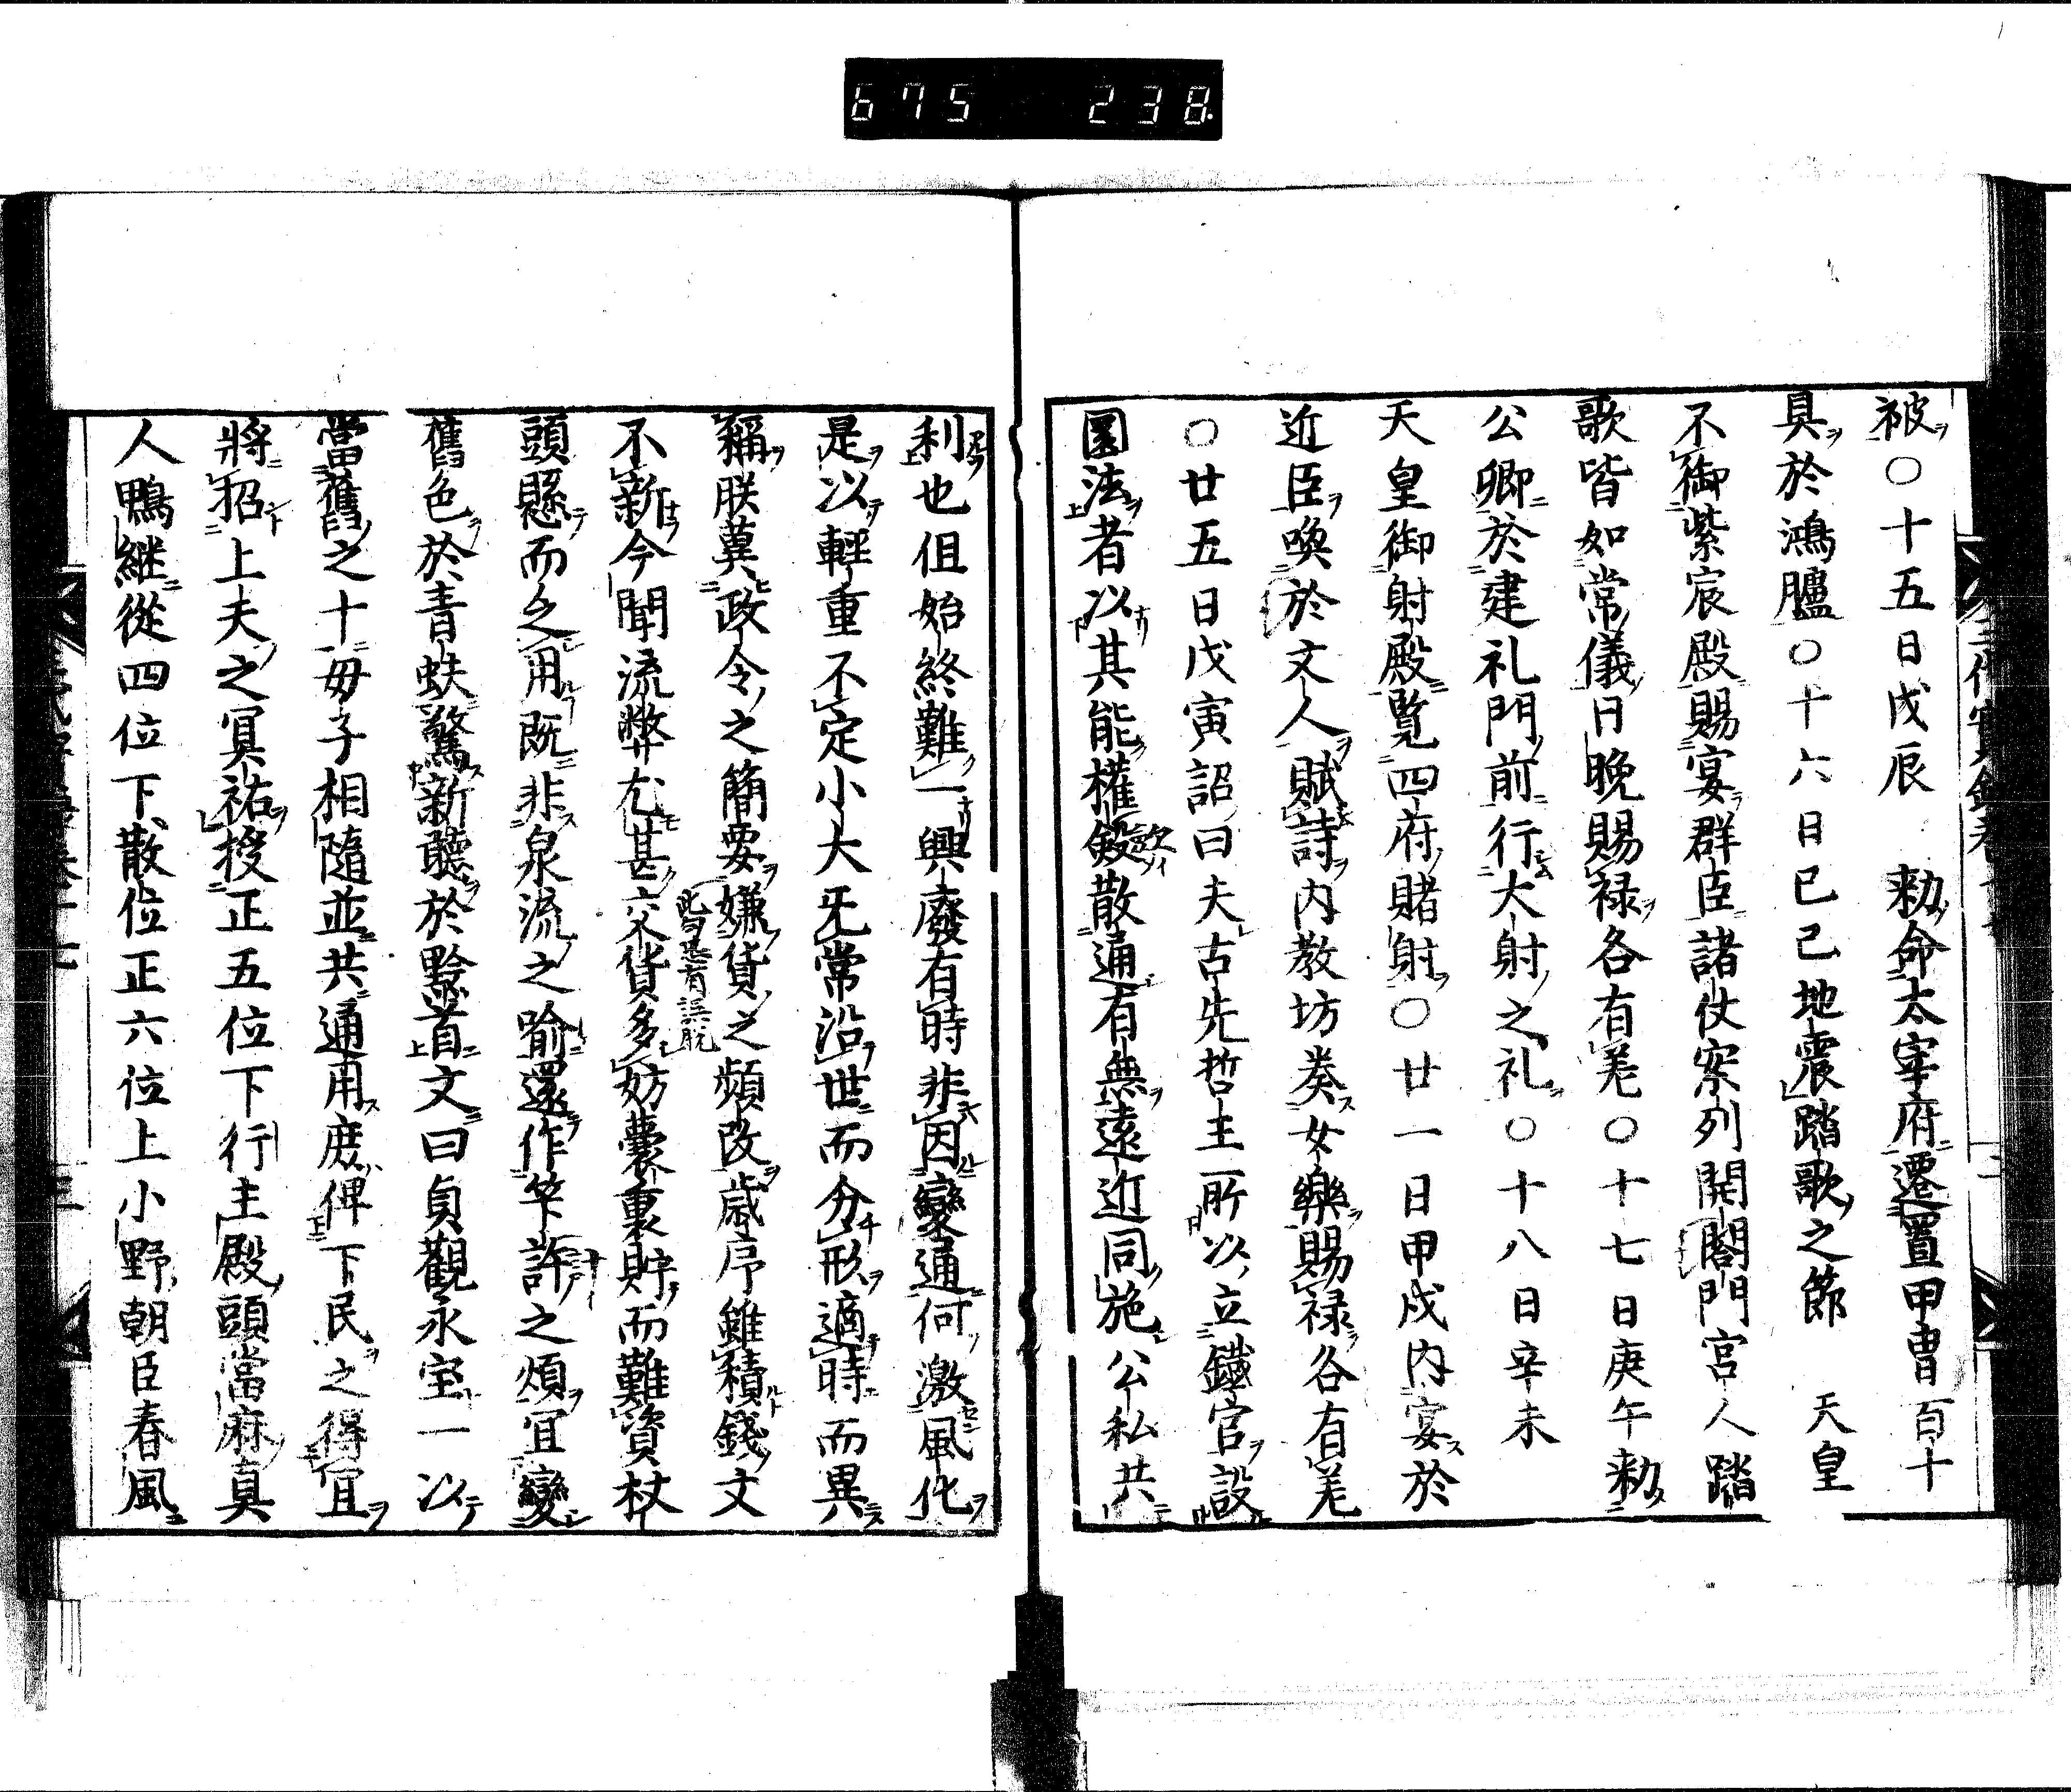 675 238
被○十五日戊辰 勅命太宰府遷置甲冑百十
具於鴻臚○十六日己巳地震踏歌之節 天皇
不御紫宸殿賜宴群臣諸仗案列開閤門宮人踏
歌皆如常儀日晚賜禄各有差○十七日庚午勅
公卿於建礼門前行大射之礼○十八日辛未
天皇御射殿覧四府賭射○廿一日甲戌内宴於
近臣喚於文人賦詩内教坊奏女樂賜禄各有差
○廿五日戊寅詔曰夫古先哲王所以立鐵官設
圜法者以其能權斂散通有無遠近同施公私共
利也但始終難一興廢有時非因變通何激風化
是以輕重不定小大旡常沿世而分形適時而異
稱朕莫政令之簡要嫌貨之頻改歳序雖積錢文
不新今聞流弊尤甚交貨多妨囊裏貯而難資杖
此間恐有誤脱
頭懸而之用既非泉流之喩還作笇許之煩宜變
舊色於青蚨驚新聽於黔首文曰貞觀永宝一以
當舊之十毋子相隨並共通用庶俾下民之得宜
將招上夫之冥祐授正五位下行主殿頭當麻真
人鴨継從四位下散位正六位上小野朝臣春風